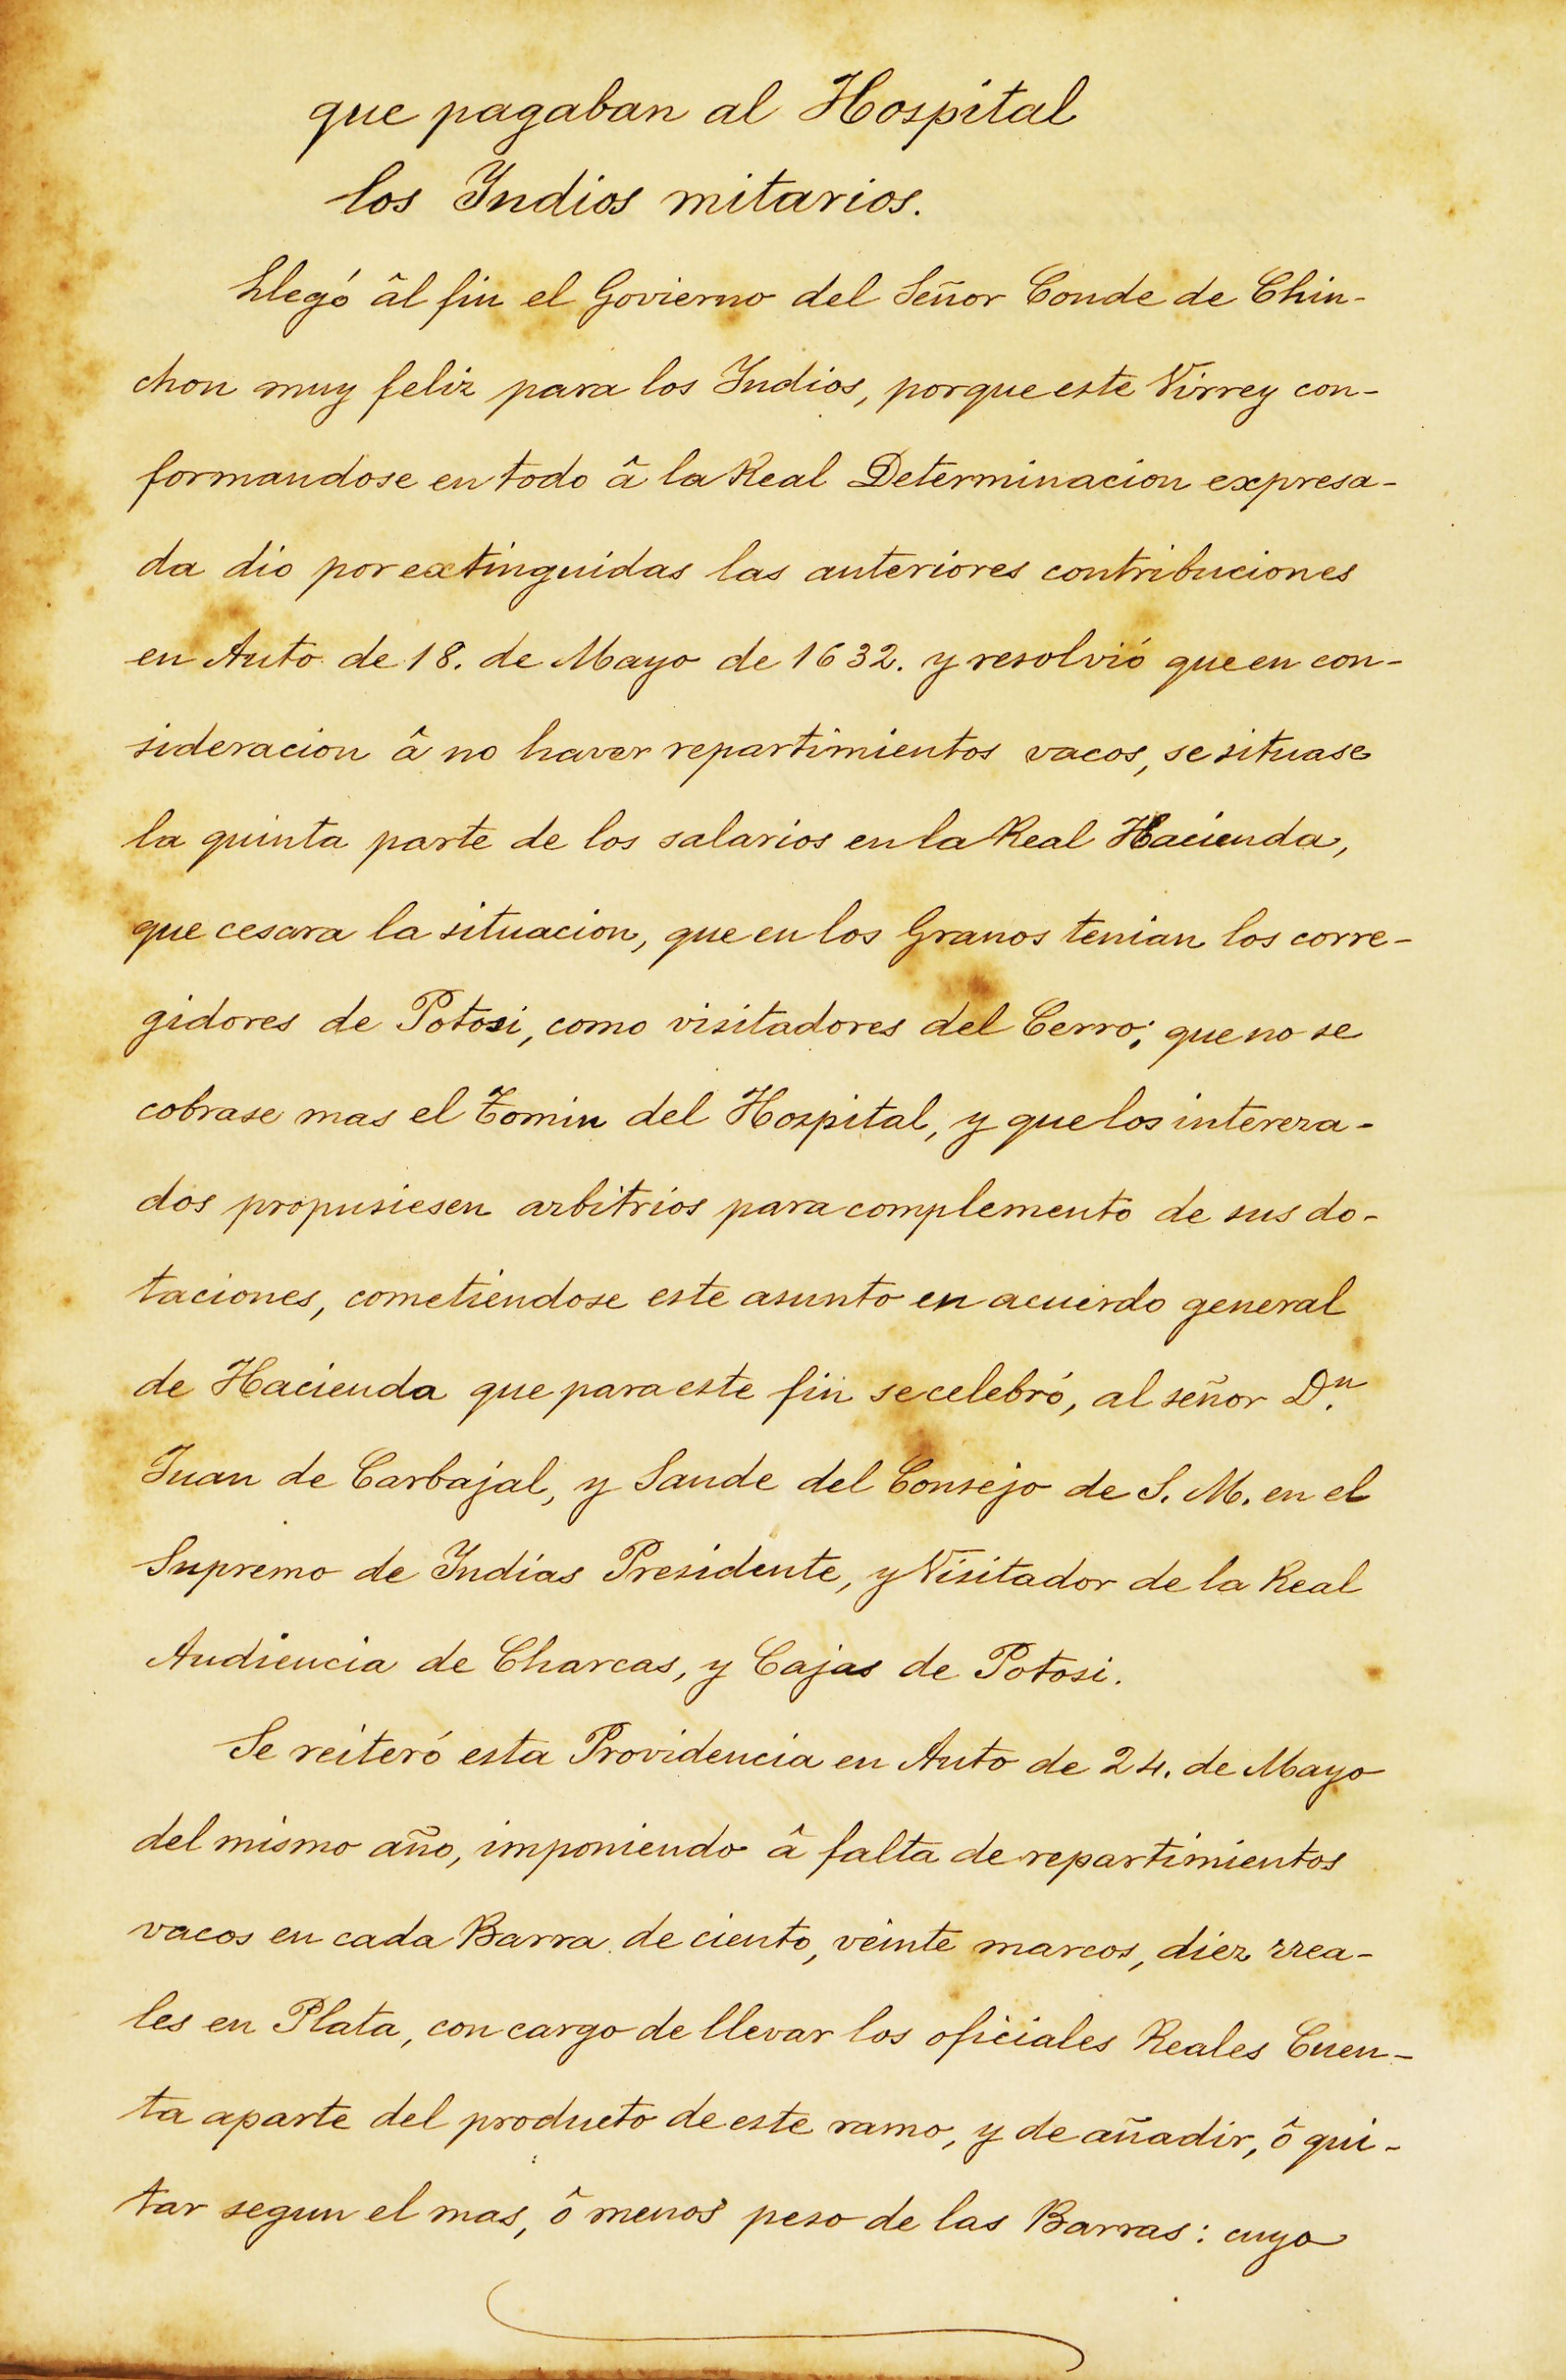 que pagaban al Hospital
los Indios mitarios.
Llegó âl fin el Govierno del Señor Conde de Chin-
chon muy feliz para los Indios, porque este Virrey con-
formandose en todo â la Real Determinacion expresa-
da dio por extinguidas las anteriores contribuciones
en Auto de 18. de Mayo de 1632. y resolvió que en con-
sideracion â no haver repartimientos vacos, se situase
la quinta parte de los salarios en la Real Hacienda,
que cesara la situacion, que en los Granos tenian los corre-
gidores de Potosi, como visitadores del Cerro; que no se
cobrase mas el Tomin del Hospital, y que los interesa-
dos propusiesen arbitrios para complemento de sus do-
taciones, cometiendose este asunto en acuerdo general
de Hacienda que para este fin se celebró, al señor Dn.
Juan de Carbajal, y Sande del Consejo de S. M. en el
Supremo de Indias Presidente, y Visitador de la Real
Audiencia de Charcas, y Cajas de Potosi.
Se reiteró esta Providencia en Auto de 24. de Mayo
del mismo año, imponiendo â falta de repartimientos
vacos en cada Barra de ciento, veinte marcos, diez rrea-
les en Plata, con cargo de llevar los oficiales Reales Cuen-
ta aparte del producto de este ramo, y de añadir, ô qui-
tar segun el mas, ô menos peso de las Barras: cuyo